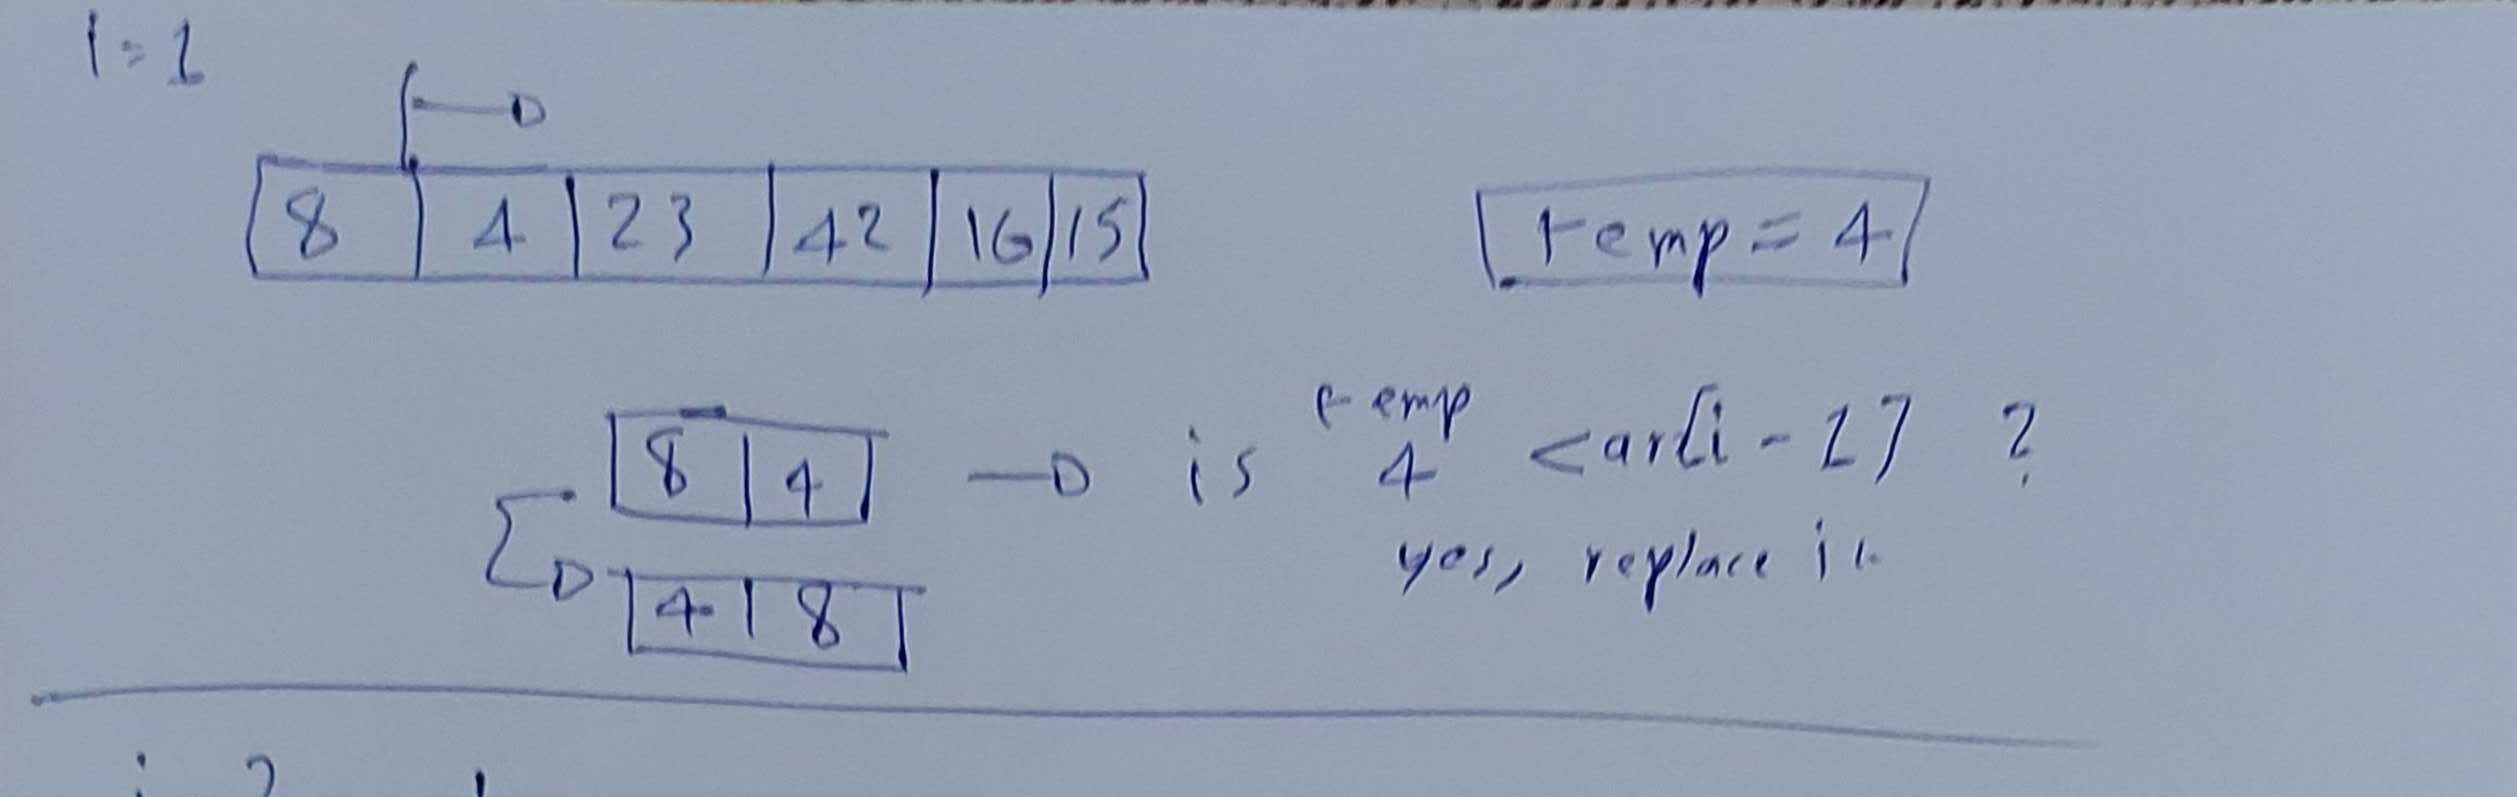 i=1
8 4 23 42 16 15
temp = 4
8 4 is temp 4 < ar[i-1] ?
yes, replace it
4 8
i 2